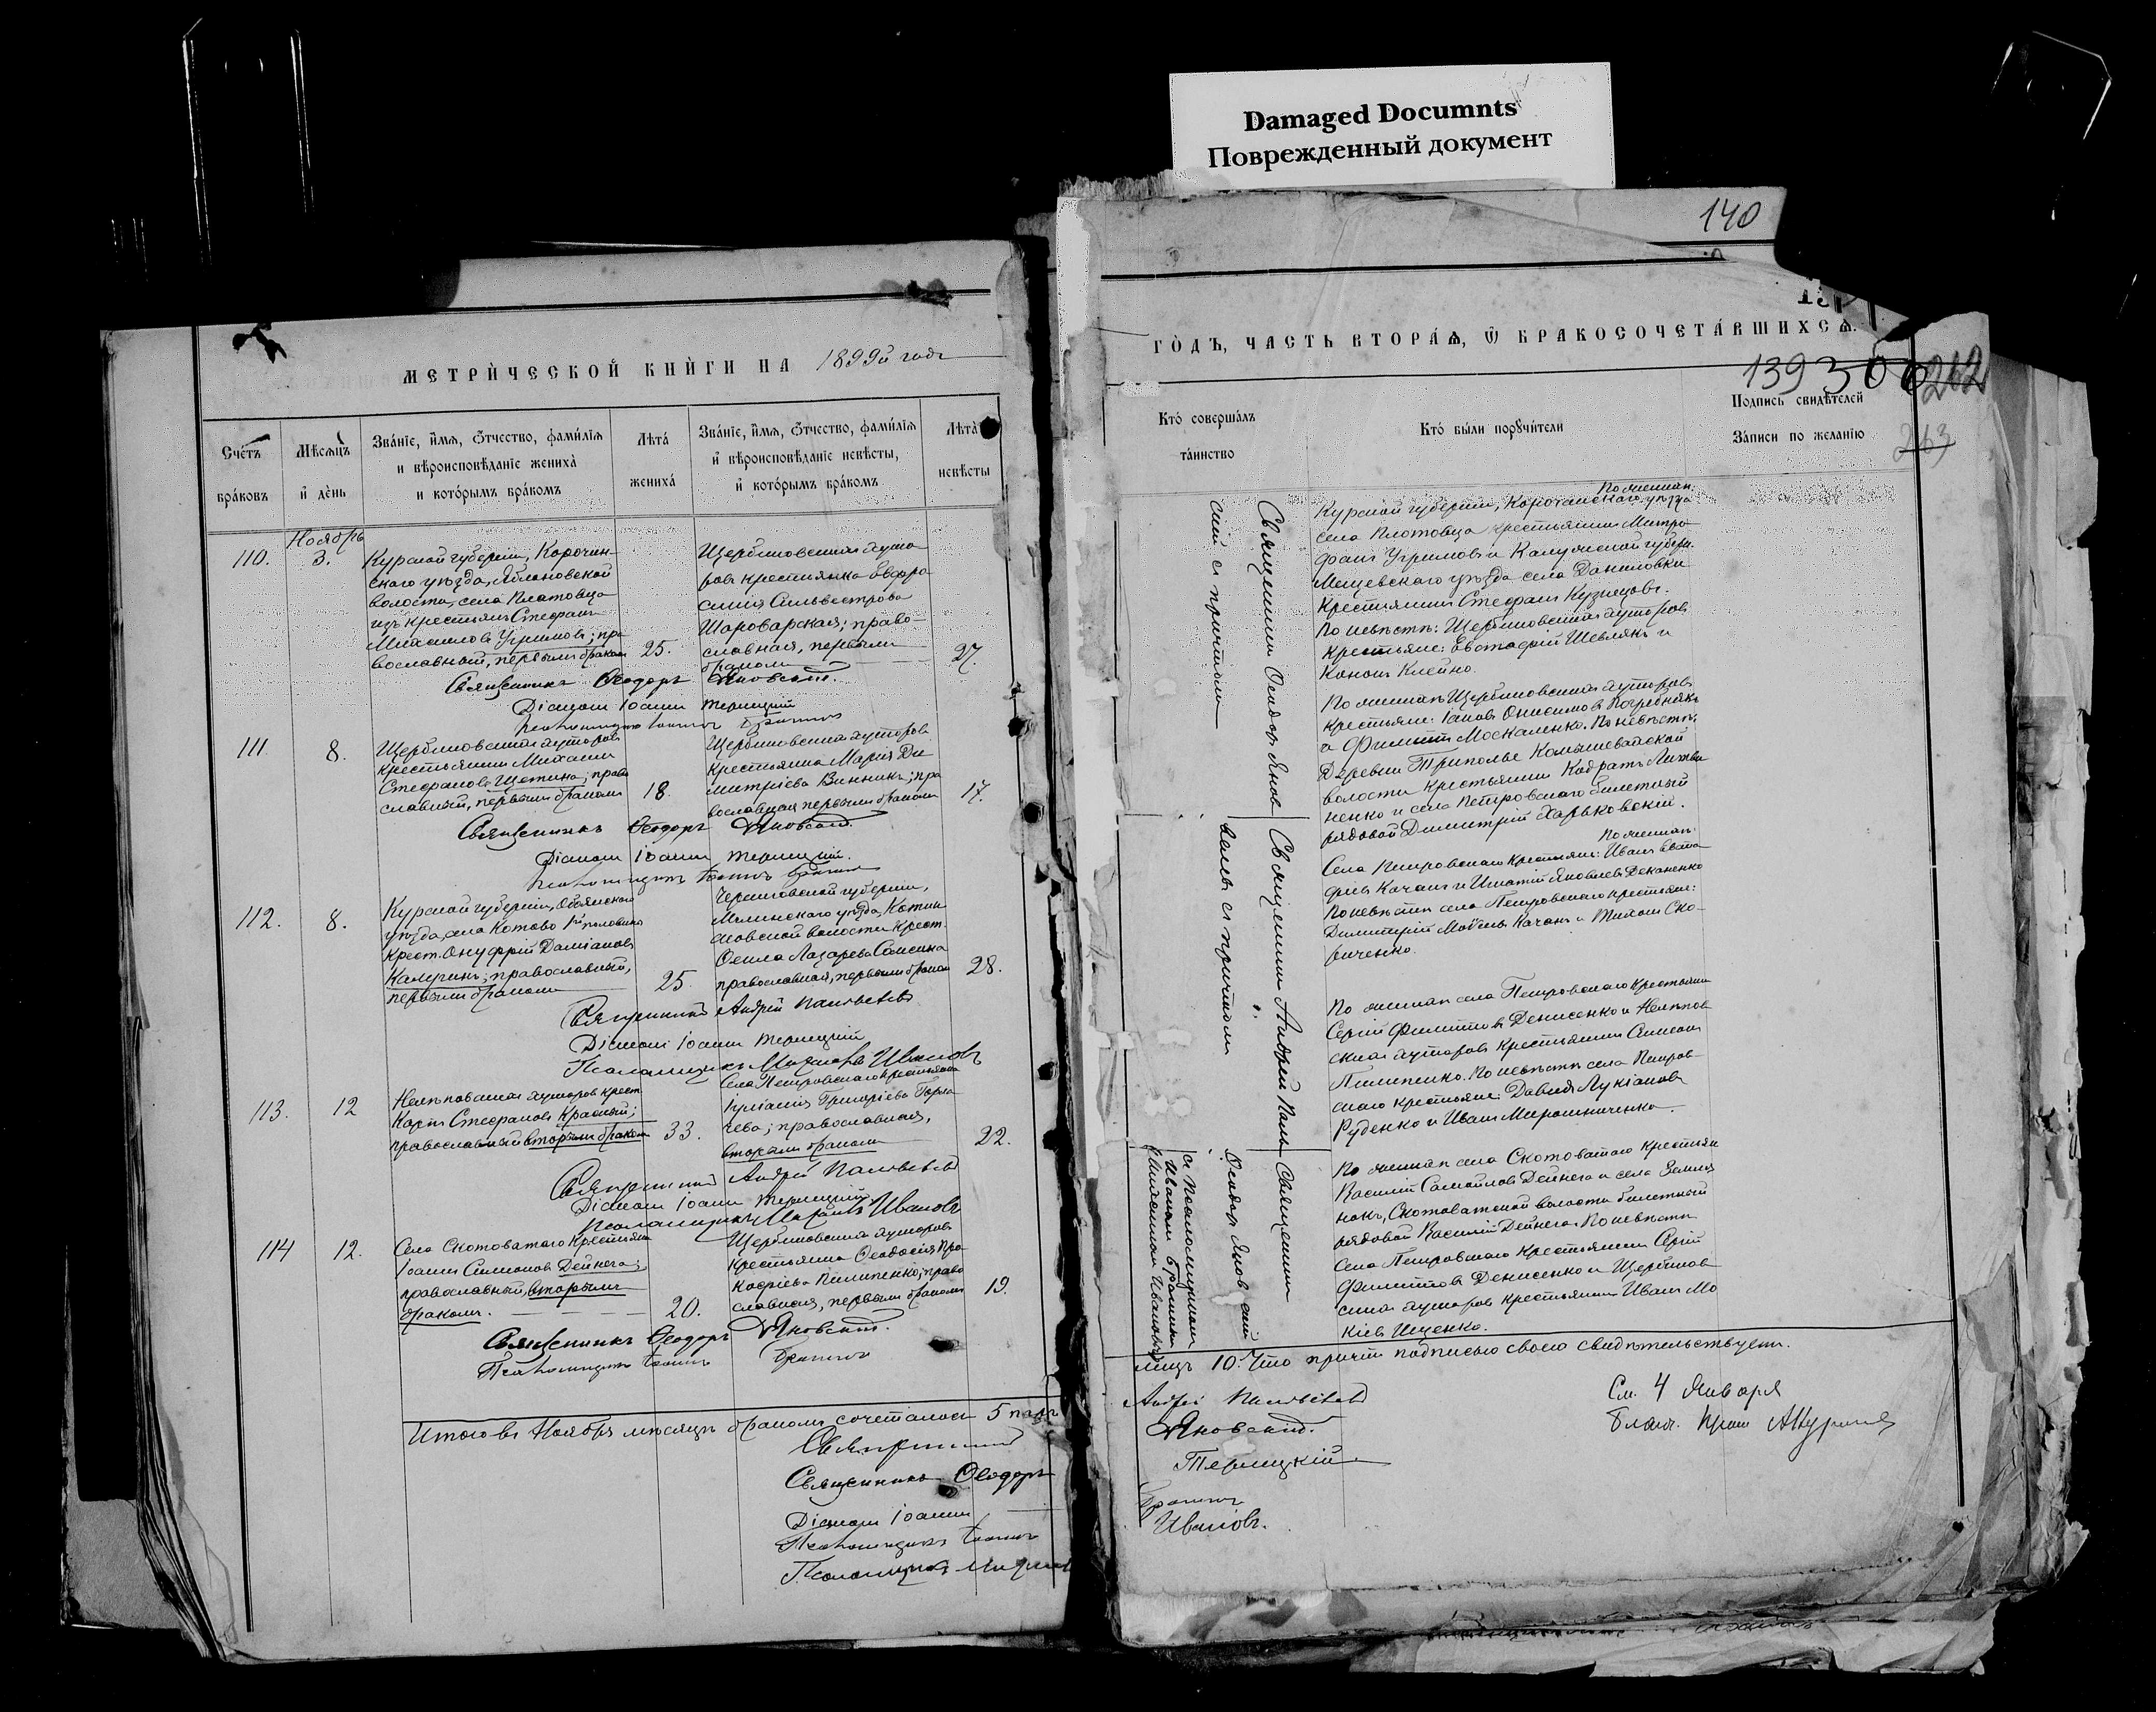 Damaged Documnts
Поврежденный документ
140
МЕТРИ́ЧЕСКОЙ КНИ́ГИ НА 1899й годъ
Сче́тъ бра́ковъ
Мѣ́сѧцъ и҆ де́нь
Зва́нїе, и҆́мѧ, ѻ҆́тчество, фами́лїѧ и вѣроисповѣ́данїе жениха̀ и кото́рымъ бра́комъ
Лѣ́та жениха́
Зва́нїе, и҆́мѧ, ѻ҆́тчество, фами́лїѧ и҆ вѣроисповѣ́данїе невѣ́сты, и҆ кото́рымъ бра́комъ
Лѣ́та невѣ́сты
Ноябрь
110.
3.
Курской губерніи, Корочан-
скаго уѣзда, Яблоновской
волости, села Плотовца
изъ крестьянъ Стефанъ
Михаиловъ Угримовъ; пра-
вославный, первымъ бракомъ
25.
Щербиновскихъ хуто
ровъ крестьянка Евфро
синія Сильвестрова
Шароварская; право-
славная, первымъ
бракомъ
27.
Священникъ Ѳеодоръ Яновскій.
Діаконъ Іоаннъ Терлецкій
111.
8.
Щербиновскихъ хуторовъ
крестьянинъ Михаилъ
Стефановъ Щетина; право
славный, первымъ бракомъ
18.
Щербиновскихъ хуторовъ
крестьянка Марія Ди
митріева Винникъ; пра
вославная первымъ бракомъ
17.
Священникъ Ѳеодоръ Яновскій.
Діаконъ Іоаннъ Терлецкій.
112.
8.
Курской губерніи, Обоянскаго
уѣзда, села Котово 1й половины
крест. Онуфрій Даміановъ
Калугинъ; православный,
первымъ бракомъ
25.
Черниговской губерніи,
Мглинскаго уѣзда,
волости крест.
Лазарева
православная, первымъ бракомъ
28.
Священникъ Андрей
Діаконъ Іоаннъ Терлецкій
Псаломщикъ Ивановъ
113.
12
Нелѣповскихъ хуторовъ крест.
Карпъ Стефановъ Красный;
православный вторымъ бракомъ
33.
Села Петровскаго крестьянка
Іуліанія Григоріева
православная,
вторымъ бракомъ
22.
Священникъ Андрей
Діаконъ Іоаннъ Терлецкій
Псаломщикъ Ивановъ
114
12.
Села Скотоватаго крестьянинъ
Іоаннъ Симоновъ Дейнега;
православный, вторымъ
бракомъ.
20.
Щербиновскихъ хуторовъ
крестьянка Ѳеодосія Про
кофіева Пилипенко; право
славная, первымъ бракомъ
19.
Священникъ Ѳеодоръ Яновскій.
Псаломщикъ Іоаннъ
Итого въ Ноябрѣ мѣсяцѣ бракомъ сочеталось 5 паръ
Священникъ
Священникъ Ѳеодоръ
Діаконъ Іоаннъ
Псаломщикъ Іоаннъ
Псаломщикъ
ГО́ДЪ, ЧАСТЬ ВТОРА́Ѧ, Ѽ БРАКОСОЧЕТА́ВШИХСѦ.
139 306 262
263
Кто́ соверша́лъ та́инство
Кто́ бы́ли порꙋчи́тели
По́дпись свидѣ́телей за́писи по жела́нїю
Священникъ Ѳеодоръ Янов
скій съ причтомъ
По женихѣ.
Курской губерніи, Корочанскаго уѣзда
села Плотовца крестьянинъ Митро
фанъ Угримовъ и Калужской губерн.
Мещевскаго уѣзда села Даниловки
крестьянинъ Стефанъ Кузнецовъ.
По невѣстѣ: Щербиновскихъ хуторовъ
крестьяне: Евстафій Шевлякъ и
Кононъ Клейно.
По женихѣ Щербиновскихъ хуторовъ
крестьяне: Іаковъ Онисимовъ Погребнякъ
и Филиппъ Москаленко. По невѣстѣ:
Деревни Триполье Камышевахской
волости крестьянинъ Кодратъ Литви
ненко и села Петровскаго билетный
рядовой Димитрій Харьковскій.
Священникъ Андрей
съ причтомъ
По женихѣ:
Села Петровскаго крестьяне: Иванъ Евста
фіевъ Качанъ и Игнатій Яковлевъ Деканенко
По невѣстѣ села Петровскаго крестьяне:
Димитрій Качанъ и Тихонъ Ско-
риченко.
По женихѣ села Петровскаго крестьянинъ
Сергій Филипповъ Денисенко и Нелѣпов
скихъ хуторовъ крестьянинъ Симеонъ
Пилипенко. По невѣстѣ села Петров-
скаго крестьяне: Давидъ Лукіановъ
Руденко и Иванъ Мирошниченко.
Священникъ
Ѳеодоръ Яновскій
съ псаломщикомъ
По женихѣ села Скотоватаго крестьян.
Василій Самойловъ Дейнега и села Земля
нокъ, Скотоватской волости билетный
рядовой Василій Дейнега. По невѣстѣ
села Петровскаго крестьянинъ Сергій
Филипповъ Денисенко и Щербинов
скихъ хуторовъ крестьянинъ Иванъ Мо
кіевъ Ищенко.
лицъ 10. Что причтъ подписью своею свидѣтельствуетъ.
Андрей
Яновскій.
Терлецкій
Ивановъ.
См. 4 Января